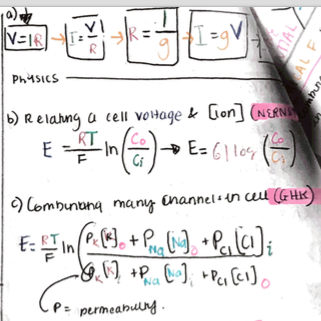 a)
V=IR → I=V/R → R=1/g → I=gV
PHYSICS
b) Relating a cell voltage & [ion] (NERNS
E = RT/F ln(Co/Ci) → E=61log(Co/Ci)
c) Combining many channels in cell (GHK)
E= RT/F ln(PK[K]o + PNa[Na]o + PCl[Cl]i / PK[K]i + PNa[Na]i + PCl[Cl]o)
P= permeability.